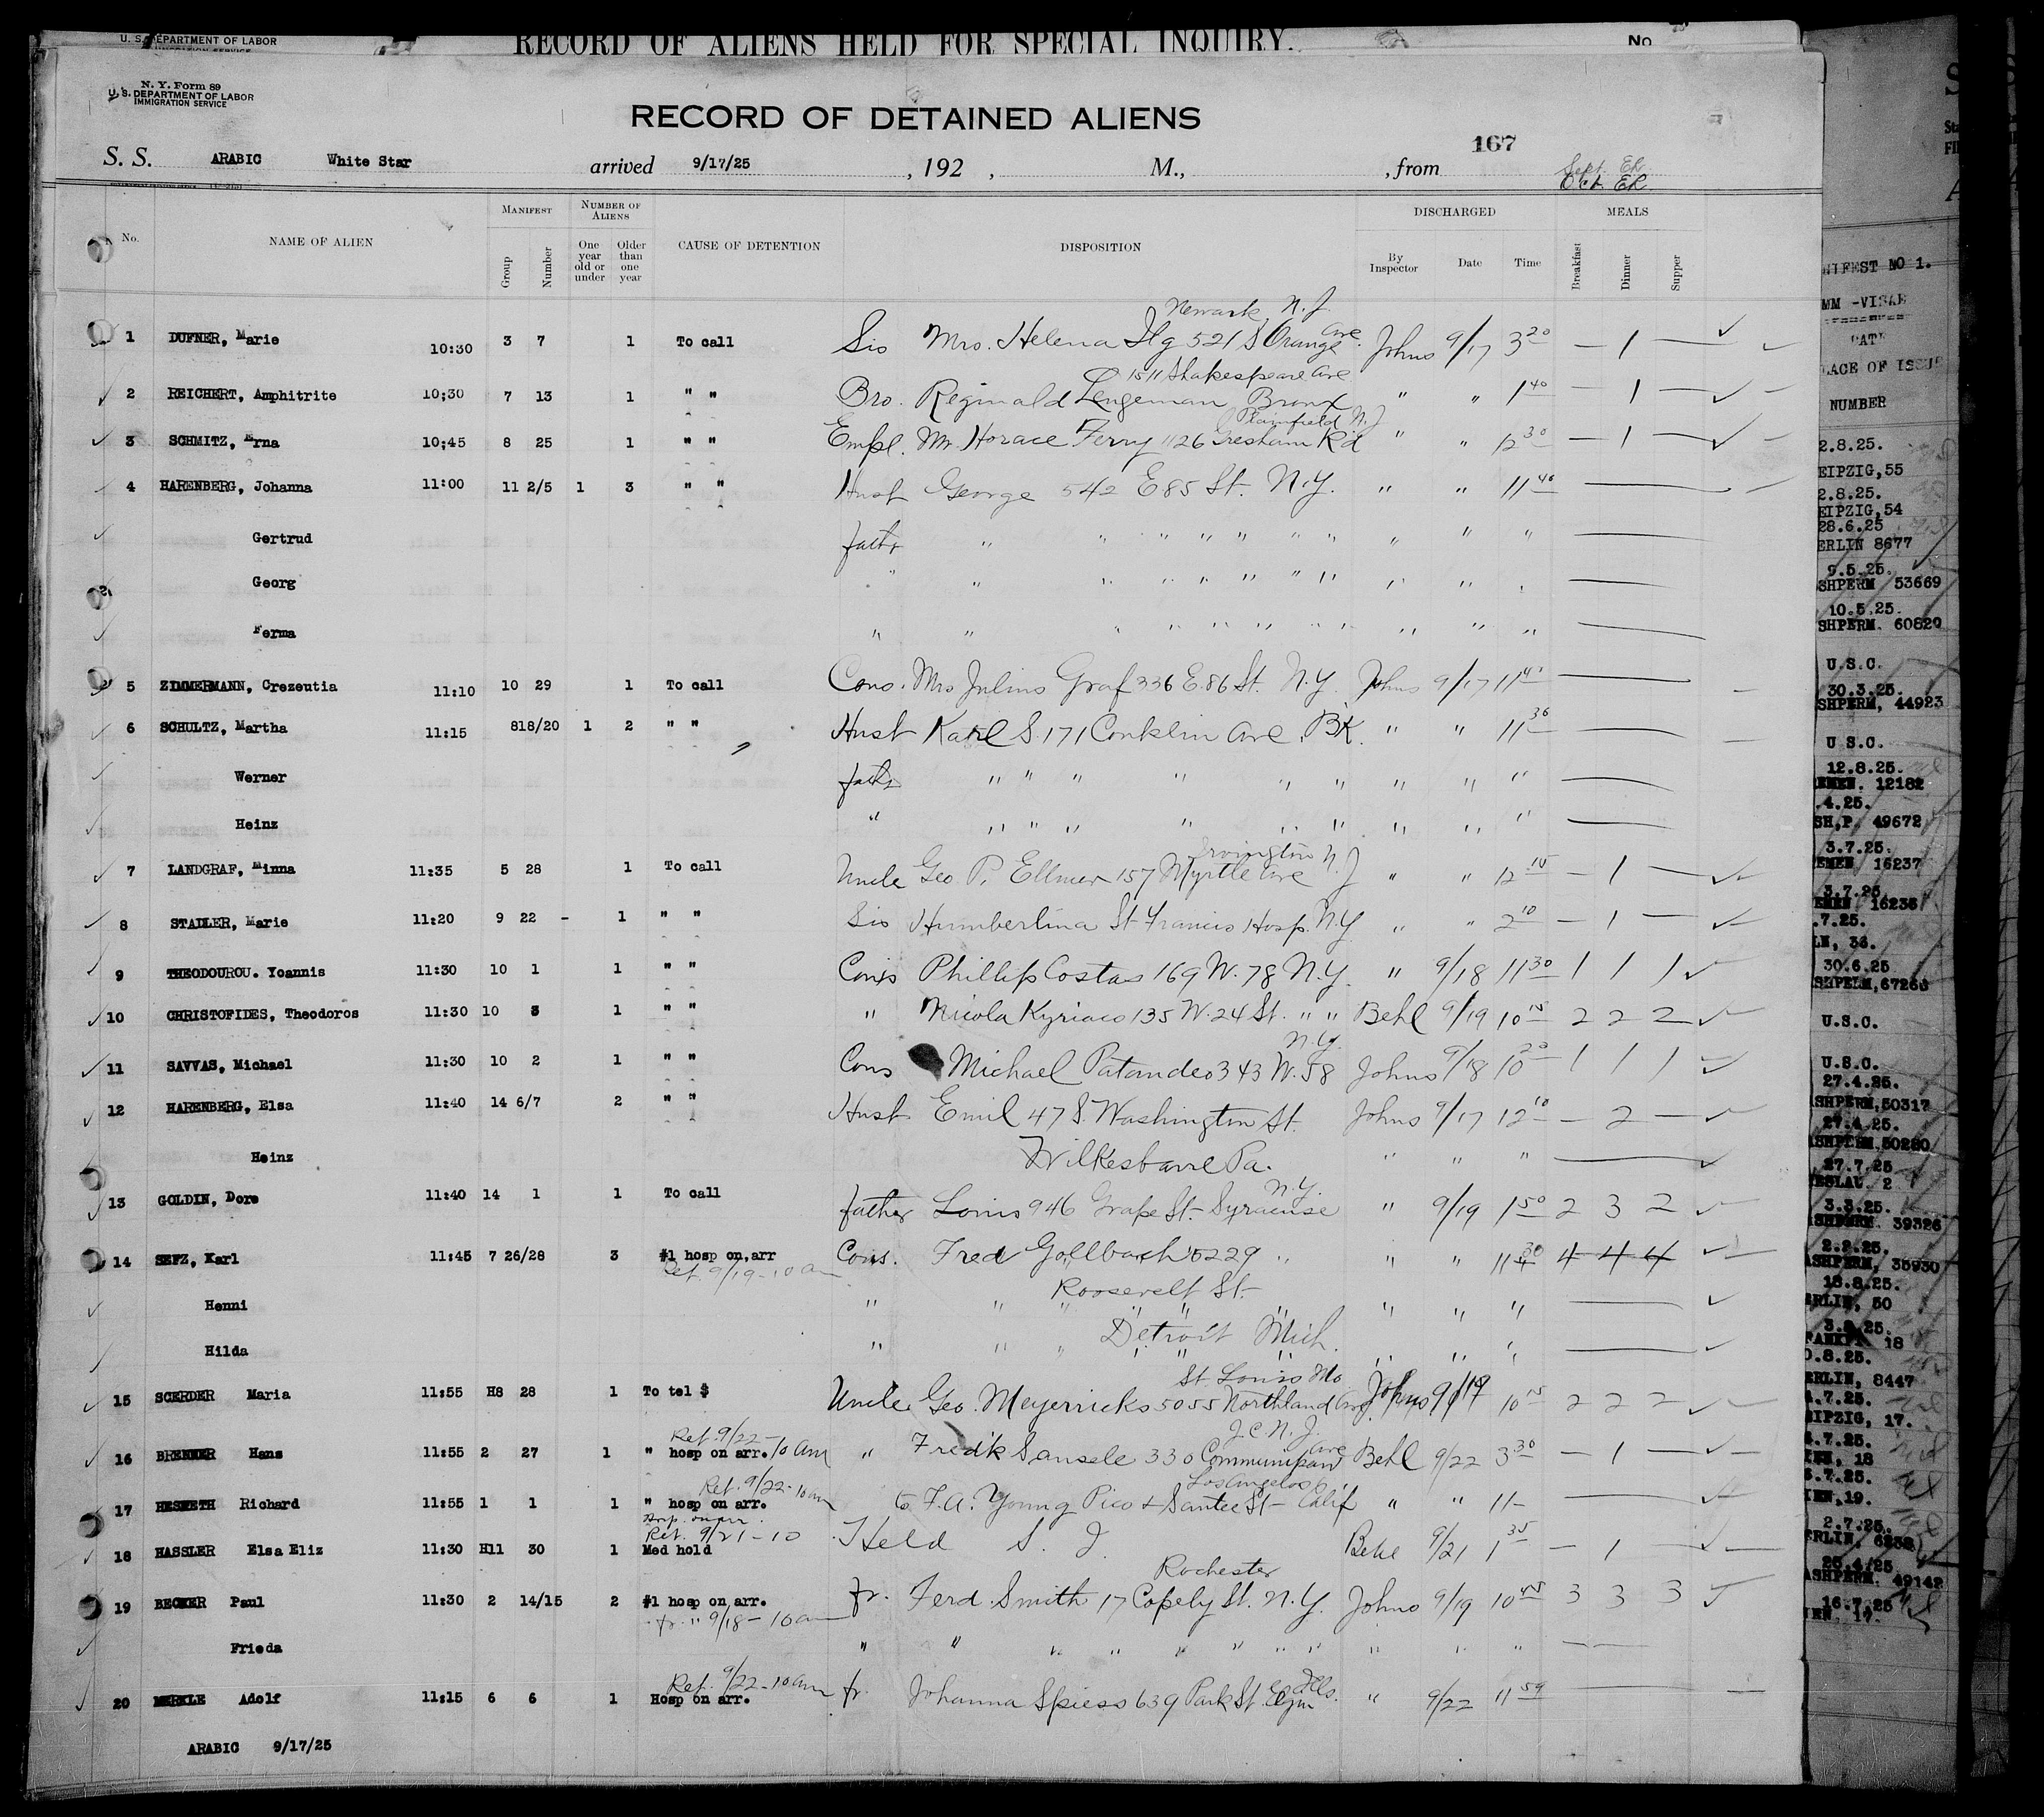 U. S. DEPARTMENT OF LABOR
RECORD OF ALIENS HELD FOR SPECIAL INQUIRY.
No.
N. Y. Form 89
U. S. DEPARTMENT OF LABOR
IMMIGRATION SERVICE
RECORD OF DETAINED ALIENS
167
S. S. ARABIC White Star arrived 9/17/25 , 192 , M., , from
Sept. ER
Oct. ER
No. NAME OF ALIEN MANIFEST Group Number NUMBER OF ALIENS One year old or under Older than one year CAUSE OF DETENTION DISPOSITION DISCHARGED By Inspector Date Time MEALS Breakfast Dinner Supper
Newark N. J.
1 DUFNER, Marie 10:30 3 7 1 To call Sis Mrs. Helena Ilg 521 S Orange Ave. Johns 9/17 3 20 — 1 —
1511 Shakespeare Ave
2 REICHERT, Amphitrite 10:30 7 13 1 " " Bro. Reginald Lengeman Bronx " " 1 40 — 1 —
Plainfield N. J
3 SCHMITZ, Erna 10:45 8 25 1 " " Empl. Mr Horace Ferry 1126 Gresham R'd " " 12 30 — 1 —
4 HARENBERG, Johanna 11:00 11 2/5 1 3 " " Husb George 542 E 85 St. N.Y. " " 11 40
Gertrud fath " " " " " " " " " "
Georg " " " " " " " " " "
Ferma " " " " " " " " " "
5 ZIMMERMANN, Crezeutia 11:10 10 29 1 To call Cous. Mrs Julius Graf 336 E. 86 St. N.Y. Johns 9/17 11 40
6 SCHULTZ, Martha 11:15 818/20 1 2 " " Husb Karl S. 171 Conklin Ave. BK. " " 11 36
Werner fath " " " " " " " " "
Heinz " " " " " " " " " "
Irvington N. J
7 LANDGRAF, Minna 11:35 5 28 1 To call Uncle Geo P. Ellmer 157 Myrtle Ave " " 12 15 — 1 —
8 STADLER, Marie 11:20 9 22 - 1 " " Sis Humbertina St Francis Hosp. N.Y " " 2 10 — 1 —
9 THEODOUROU. Yoannis 11:30 10 1 1 " " Cous Phillip Costas 169 W. 78 N.Y. " 9/18 11 30 1 1 1
10 CHRISTOFIDES, Theodoros 11:30 10 3 1 " " " Nicola Kyriaco 135 W. 24 St. " " Behl 9/19 10 15 2 2 2
N.Y.
11 SAVVAS, Michael 11:30 10 2 1 " " Cous Michael Patandeo 343 W. 58 Johns 9/18 10 20 1 1 1
12 HARENBERG, Elsa 11:40 14 6/7 2 " " Husb Emil 47 S. Washington St. Johns 9/17 12 10 — 2 —
Heinz Wilkesbarre Pa. " " "
N.Y.
13 GOLDIN, Dore 11:40 14 1 1 To call father Louis 946 Grape St. Syracuse " 9/19 1 50 2 3 2
14 SEFZ, Karl 11:45 7 26/28 3 #1 hosp on,arr Cous. Fred Gollbach 5229 " " 11 30 4 4 4
Ret. 9/19-10 am Roosevelt St.
Henni " " " " " " " "
Detroit Mich.
Hilda " " " " " " " "
St Louis Mo
15 SCERDER Maria 11:55 H8 28 1 To tel $ Uncle Geo. Meyerricks 5055 Northland Ave Johns 9/19 10 15 2 2 2
Ret. 9/22-10 am J.C. N.J.
16 BRENNER Hans 11:55 2 27 1 " hosp on arr. " Fredk Sansele 330 Communipaw Ave Behl 9/22 3 30 — 1 —
Ret. 9/22-10 am Los Angelos
17 HESMETH Richard 11:55 1 1 1 " hosp on arr. to F.A. Young Pico & Santee St — Calif " " 11—
Hosp. on arr.
Ret. 9/21-10
18 HASSLER Elsa Eliz 11:30 H11 30 1 Med hold Held S. I. Behl 9/21 1 35 — 1 —
Rochester
19 BECKER Paul 11:30 2 14/15 2 #1 hosp on arr. fr. Ferd. Smith 17 Copely St. N.Y. Johns 9/19 10 45 3 3 3
fr. " 9/18-10 am
Frieda " " " " " " " " " "
Ret. 9/22-10 am Ills.
20 MERKLE Adolf 11:15 6 6 1 Hosp on arr. fr. Johanna Spiess 639 Park St. Elgin " 9/22 11 59
ARABIC 9/17/25
NUMBER
2.8.25.
EIPZIG,55
2.8.25.
EIPZIG,54
28.6.25
ERLIN 8677
9.5.25.
SHPERM 53669
10.5.25.
SHPERM. 60820
U.S.C.
30.3.25.
SHPERM, 44923
U S.C.
12.8.25.
EMEN. 12182
.4.25.
SH,P. 49672
3.7.25.
EMEN 16237
3.7.25.
EMEN 16236
.7.25.
LN, 36.
30.6.25
U.S.C.
U.S.C.
27.4.25.
ASHPERM,50317
27.4.25.
ASHPERM,50280
27.7.25
ESLAU. 2
3.3.25.
ASHPERM. 39326
2.2.25.
ASHPERM, 35930
18.8.25.
ERLIN, 50